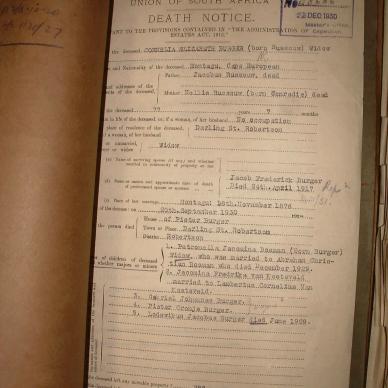 UNION OF SOUTH AFRICA
DEATH NOTICE.
TO THE PROVISIONS CONTAINED IN "THE ADMINISTRATION OF
ESTATES ACT, 1913."
22 DEC 1930
the deceased CORNELIA ELIZABETH BURGER (born Rossouw) Widow
and Nationality of the deceased Montagu, Cape European
Father Jacobus Rossouw, dead
and addresses of the
of the deceased Mother Nellie Rossouw (born Conradie) dead
the deceased 77 years 7 months
in life of the deceased, or if a woman, of her husband No occupation
place of residence of the deceased, Darling St. Robertson
if a woman, of her husband
or unmarried, Widow
or widow
(a) Name of surviving spouse (if any) and whether
married in community of property or not
(b) Name or names and approximate date of death
of predeceased spouse or spouses
Jacob Frederick Burger
Died 24th. April 1917
(c) Place of last marriage Montagu 16th. November 1876
of the decease on 29th. September 1930
House of Pieter Burger
the person died Town or Place Darling St. Robertson
District Robertson
of children of deceased
whether majors or minors
1. Petronella Jacomina Bosman (born Burger)
Widow, who was married to Abraham Chris-
tian Bosman who died December 1929.
2. Jacomina Fredrika Van Eesteveld
married to Lambertus Cornelius Van
Eesteveld.
3. Gabriel Johannes Burger.
4. Pieter Cronje Burger.
5. Lodewikus Jacobus Burger died June 1909.
deceased left any movable property